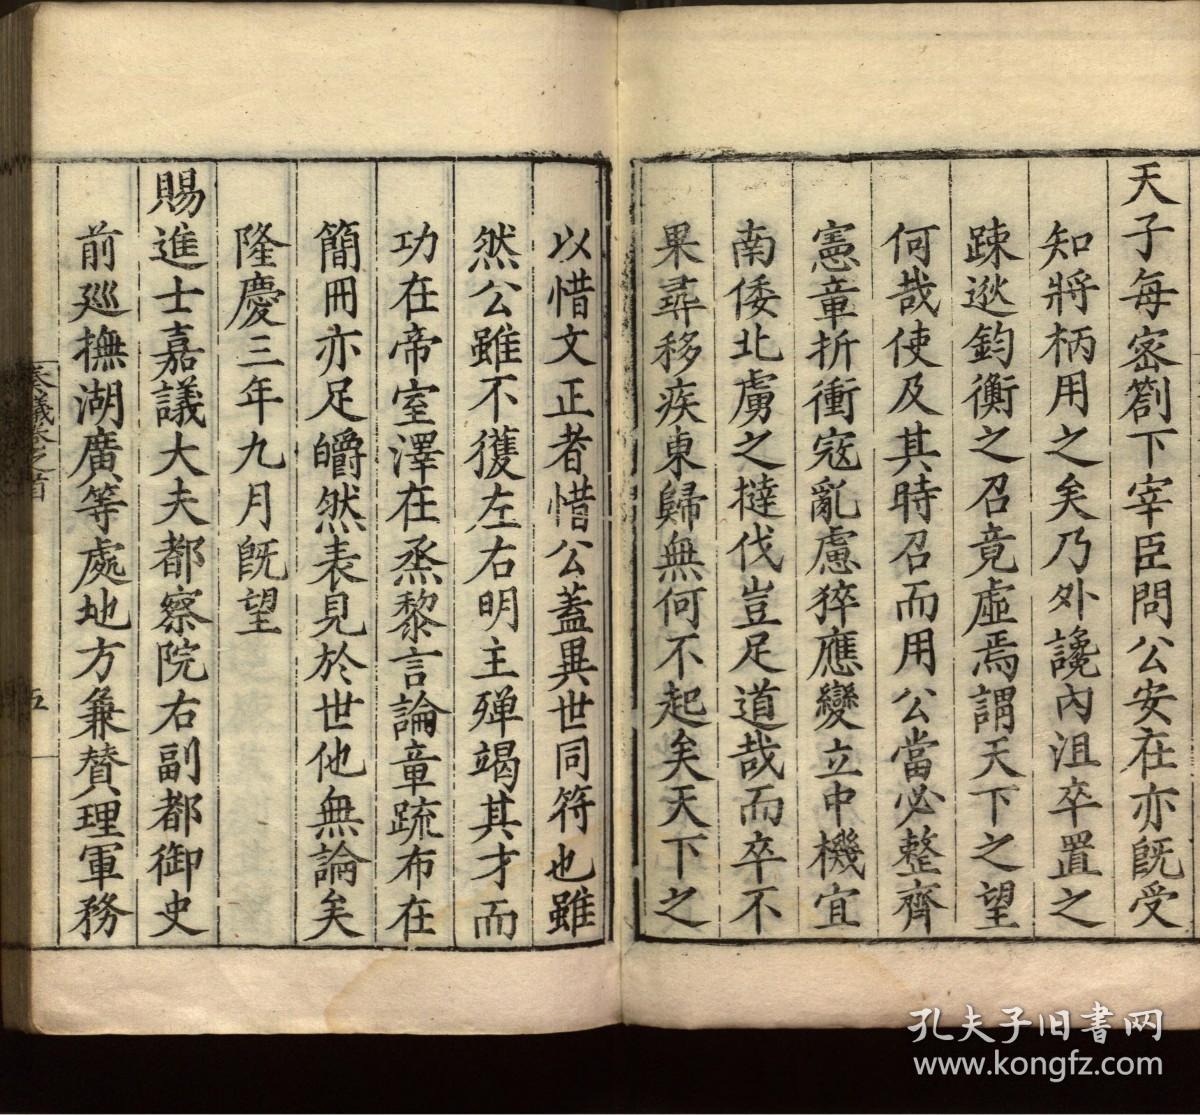 天子每密劄下宰臣問公安在亦旣受
知將柄用之矣乃外讒內沮卒置之
踈逖鈞衡之召竟虛焉謂天下之望
何哉使及其時召而用公當必整齊
憲章折衝寇亂慮猝應變立中機宜
南倭北虜之撻伐豈足道哉而卒不
果尋移疾東歸無何不起矣天下之
以惜文正者惜公蓋異世同符也雖
然公雖不獲左右明主殫竭其才而
功在帝室澤在烝黎言論章疏布在
簡冊亦足皭然表見於世他無論矣
隆慶三年九月旣望
賜進士嘉議大夫都察院右副都御史
前廵撫湖廣等處地方兼贊理軍務
奏議卷之首
五
孔夫子旧书网
www.kongfz.com